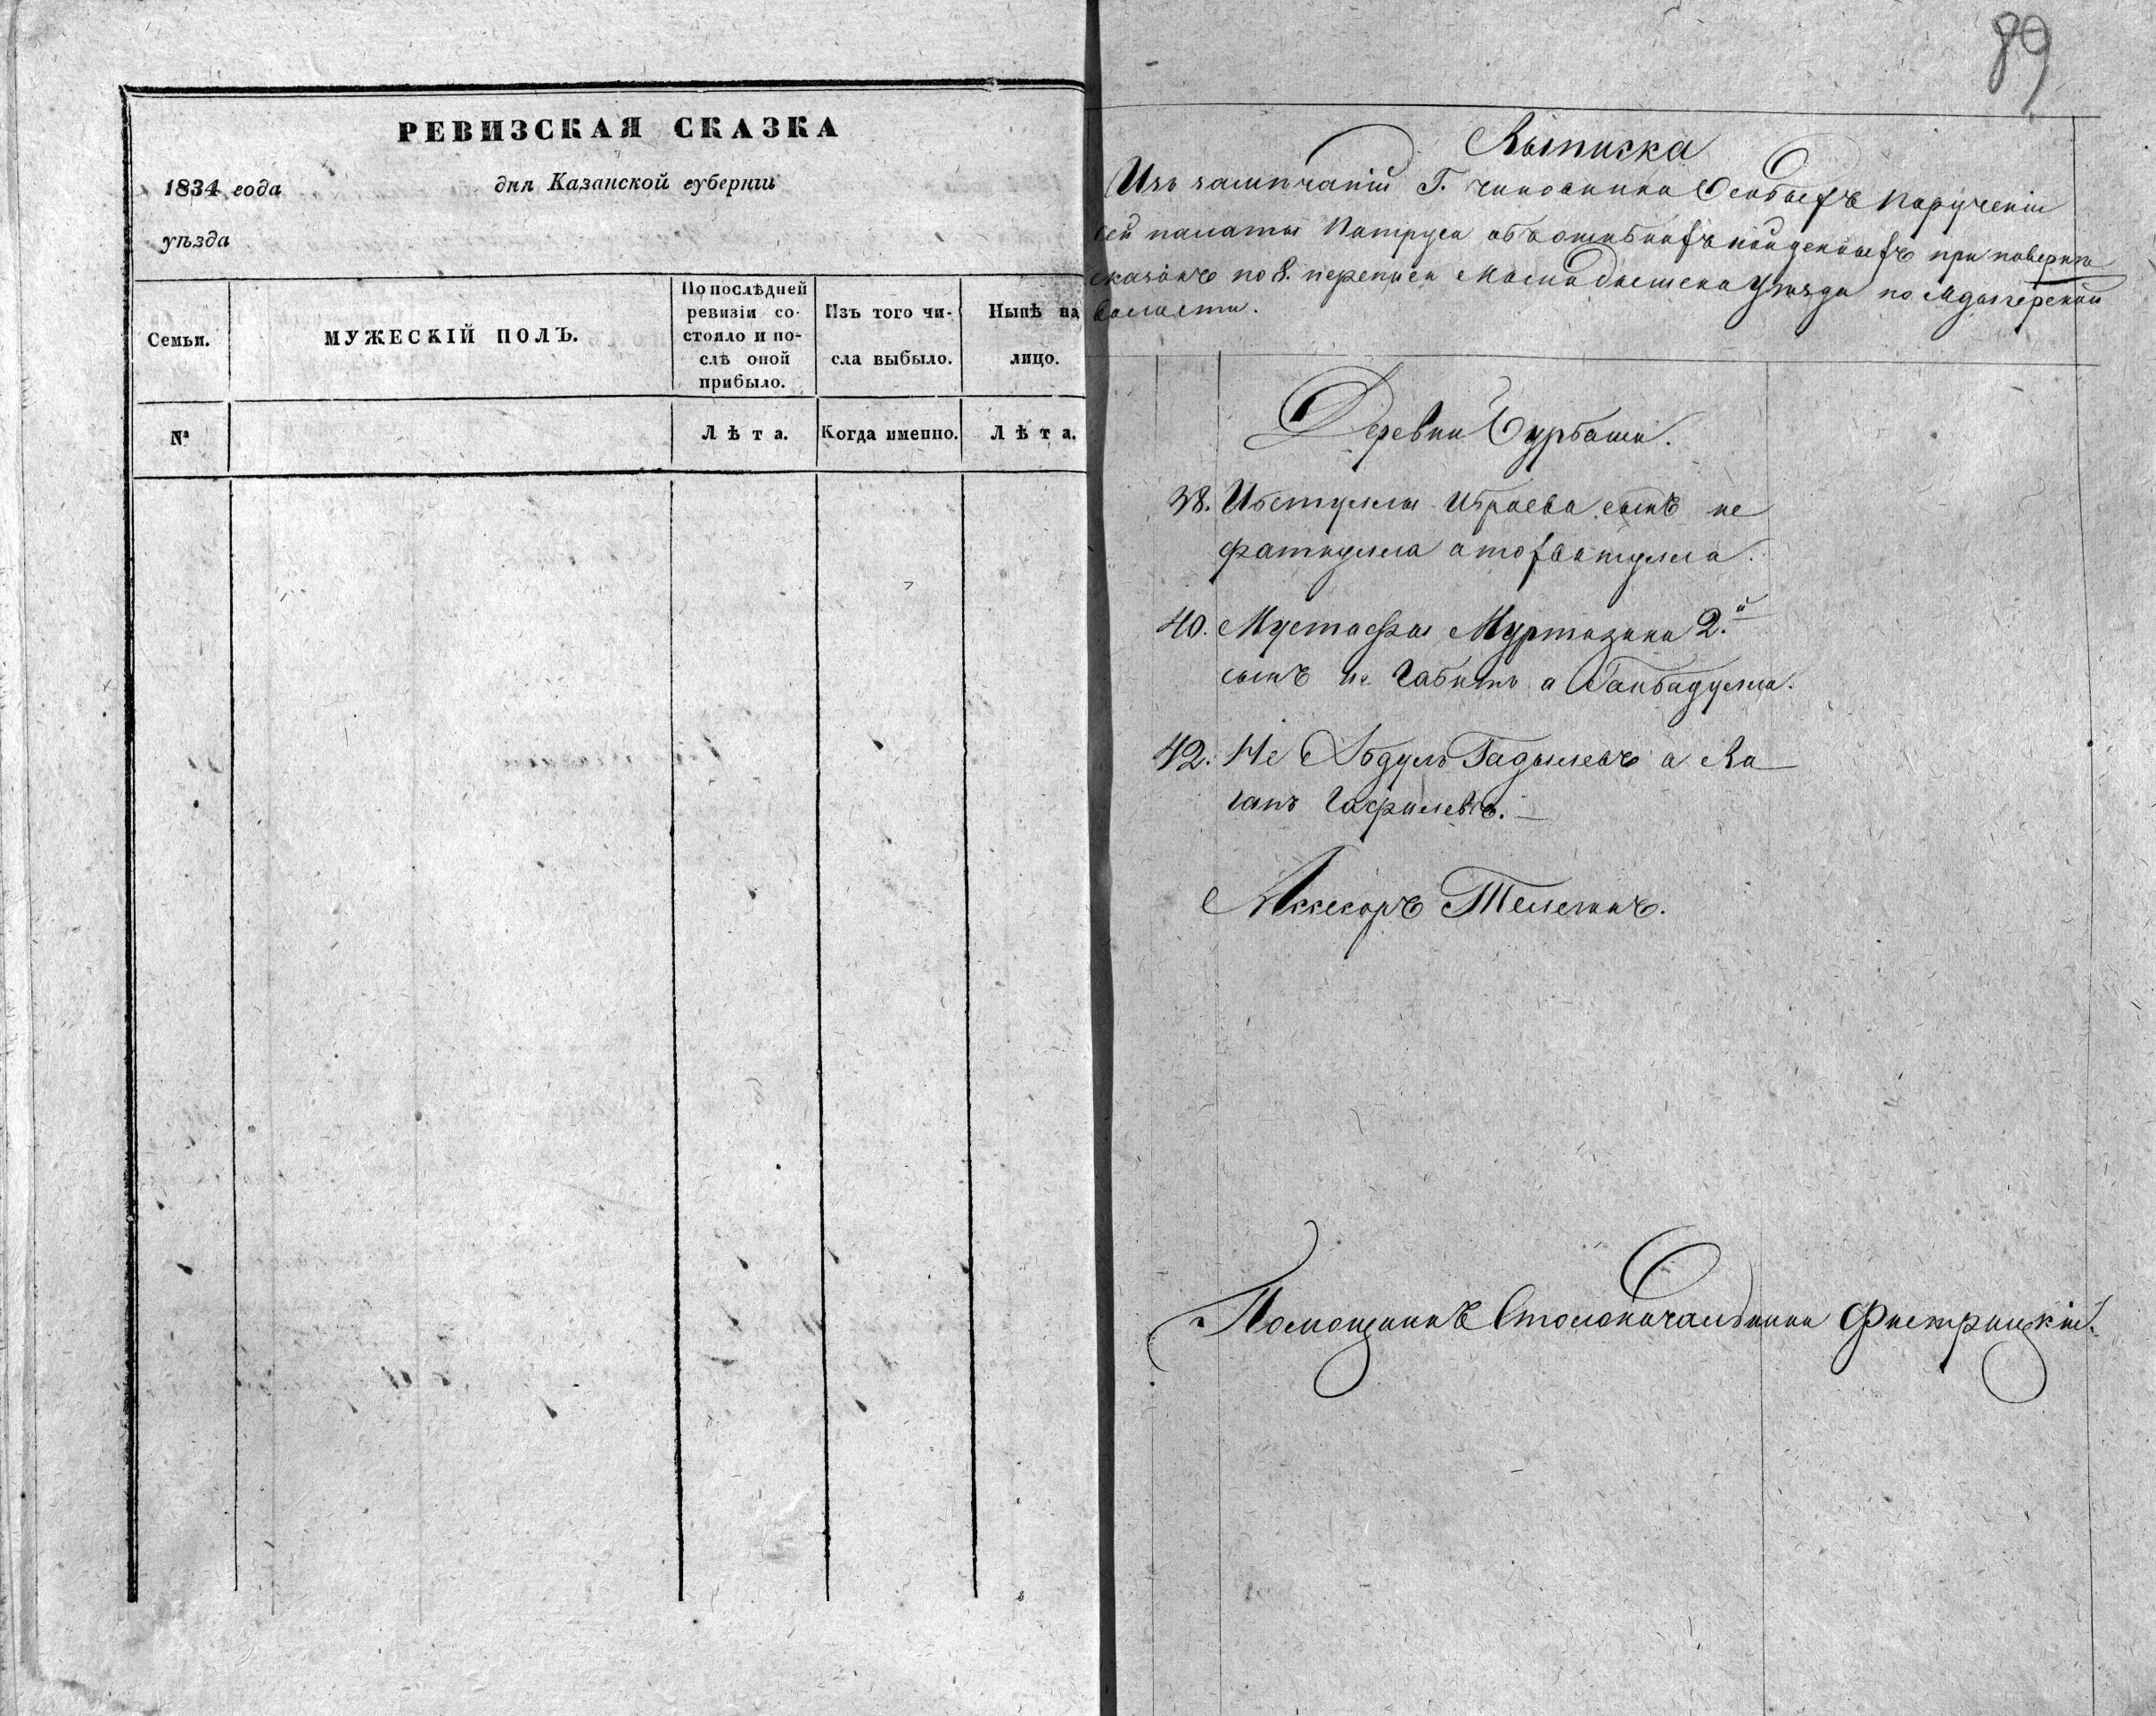 РЕВИЗСКАЯ СКАЗКА
1834 года дня Казанской губернiи
уѣзда
Семьи.
МУЖЕСКІЙ ПОЛЪ.
По послѣдней
ревизіи со-
стояло и по-
слѣ оной
прибыло.
Изъ того чи-
сла выбыло.
Нынѣ на
лицо.
№
Лѣта.
Когда именно.
Лѣта.
89
Выписка
Изъ замѣчаній Г. чиновника Особыхъ порученій
сей палаты объ ошибкахъ найденныхъ при поверкѣ
сказокъ по 8. переписи Мамадышска уѣзда по
волости.
Деревни Бурбаши.
38. сынъ не
фаткулла а тохватулла.
40. Мустафы Муртазина 2.й
сынъ не Габитъ а Гайбадулла.
42. Не Абдулъ Гадылевъ а Ва
гапъ Гафилевъ.
Ассесоръ Телешевъ.
Помощникъ Столоначальника